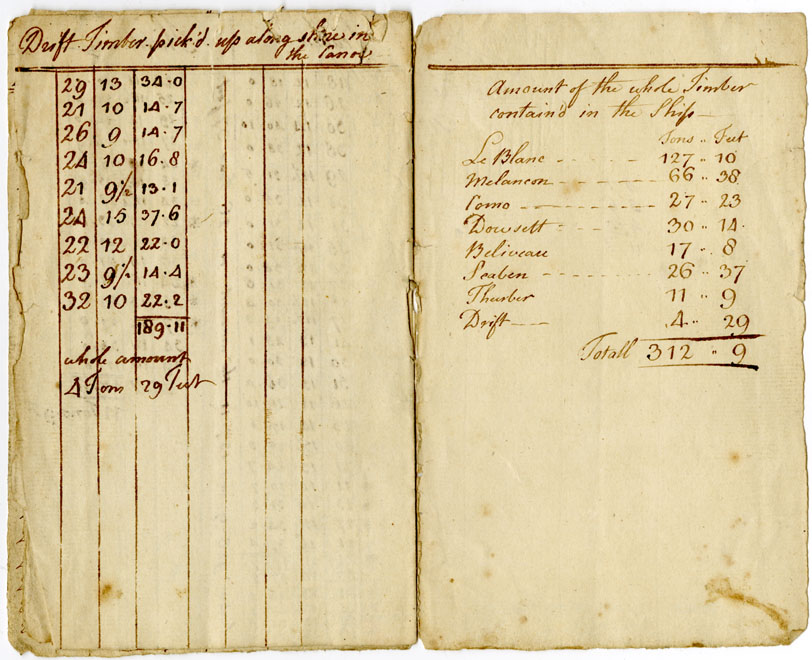 Drift Timber pick'd up along shore in
the Canoe
29 13 34.0
21 10 14.7
26 9 14.7
24 10 16.8
21 9½ 13.1
24 15 37.6
22 12 22.0
23 9½ 14.4
32 10 22.2
189.11
whole amount
4 Tons 29 Feet
Amount of the whole Timber
contain'd in the Ship
Tons .. Feet
Le Blanc - - - - - 127 .. 10
Melancon - - - - - - 66 .. 38
Como - - - - - - - - 27 .. 23
Dowsett - - - - - - 30 .. 14
Beliveau 17 .. 8
Seaben - - - - - - - 26 .. 37
Thurber 11 .. 9
Drift - - - 4 .. 29
Totall 312 .. 9